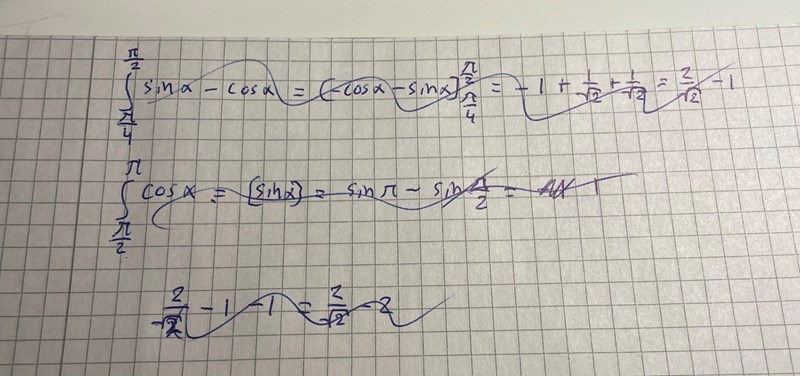 ∫_{π/4}^{π/2} sinα - cosα = [-cosα - sinα]_{π/4}^{π/2} = -1 + 1/√2 + 1/√2 = 2/√2 - 1
∫_{π/2}^{π} cosα = [sinα] = sin π - sin π/2 =
2/√2 - 1 - 1 = 2/√2 - 2